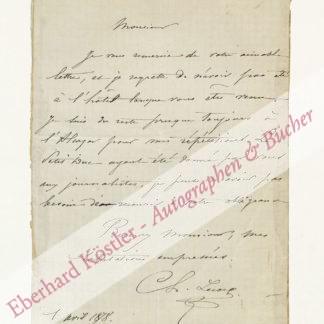 Monsieur
Je vous remercie de votre aimable
lettre, et je regrette de n'avoir pas été
à l'hôtel lorsque vous êtes venu
Je suis du reste presque toujours à
l'Alcazar pour mes répétitions
Petit Duc ayant été donné
aux journalistes, je pas
besoin de votre obligeance
Monsieur, mes
empressées.
Ch. Lecocq
1 avril 188
Eberhard Köstler - Autographen & Bücher